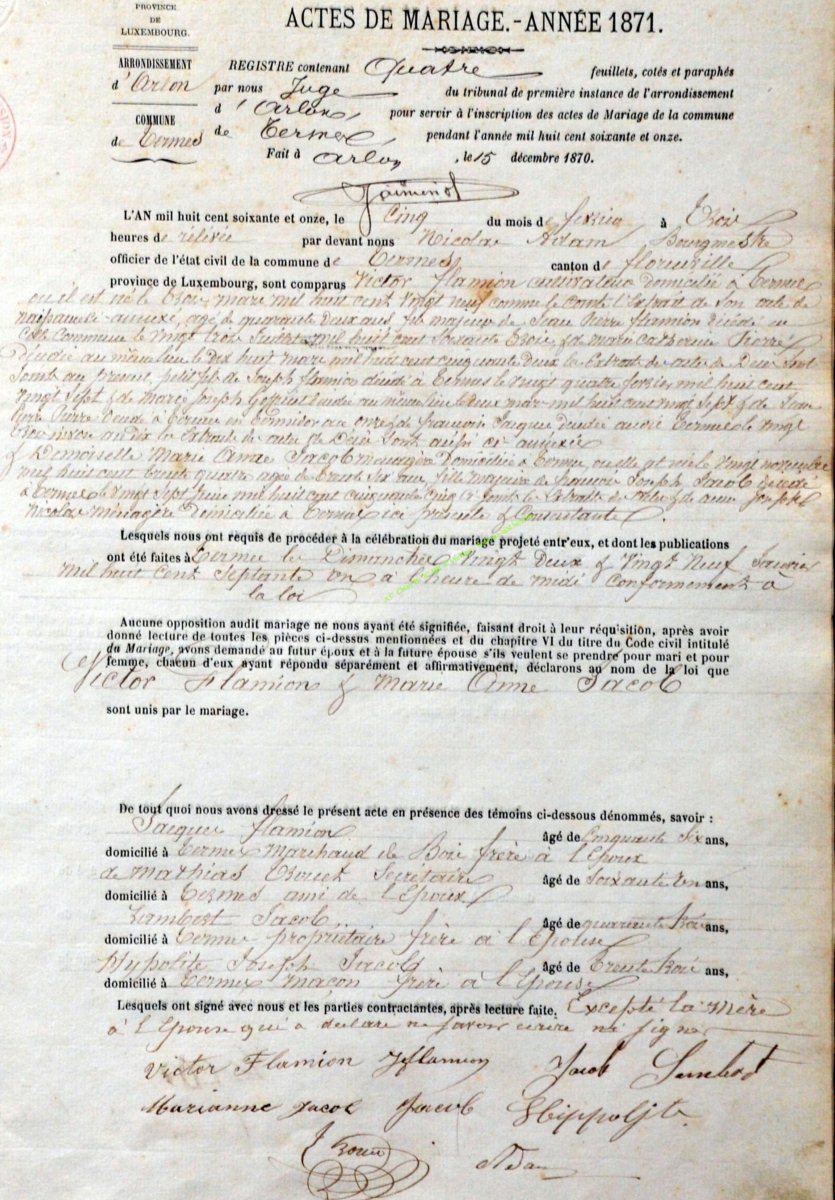 PROVINCE
DE
LUXEMBOURG.
ARRONDISSEMENT
d'Arlon
COMMUNE
de Termes
ACTES DE MARIAGE.-ANNÉE 1871.
REGISTRE contenant Quatre feuillets, cotés et paraphés
par nous Juge du tribunal de première instance de l'arrondissement
d'Arlon pour servir à l'inscription des actes de Mariage de la commune
de Termes pendant l'année mil huit cent soixante et onze.
Fait à Arlon, le 15 décembre 1870.
L'AN mil huit cent soixante et onze, le Cinq du mois de à Trois
heures de rélévée par devant nous Nicolas Adam Bourgmestre
officier de l'état civil de la commune de Termes canton de florenville
province de Luxembourg, sont comparus Victor Flamion cultivateur domicilié à Termes
où il est né le Trois mars mil huit cent vingt neuf comme le Constate l'Extrait de son acte de
naissance annexé, agé de quarante deux ans fils majeur de Jean Pierre Flamion décédé en
cette Commune le vingt trois Juillet mil huit cent soixante Trois & de marie catherine Pierre
décédée au même lieu le dix huit mars mil huit cent cinquante deux les Extraits de acte de Décès sont
petit fils de Joseph flamion décédé à Termes le vingt quatre mil huit cent
vingt Sept & de Marie Joseph décédée au même lieu le deux mars mil huit cent vingt Sept & de Jean
Pierre décédé à Termes en onze & de françois Jacques décédée audit Termes le vingt
an dix les Extraits de acte de Décès sont aussi ci annexés
& Demoiselle Marie Anne Jacob ménagère Domiciliée à Termes, où elle est née le vingt novembre
mil huit cent trente quatre agée de trente Six ans, fille majeure de Joseph Jacob décédé
à Termes le vingt Sept Juin mil huit cent cinquante Cinq & de Joseph
Nicolas Ménagère Domiciliée à Termes ici présente & Consentante.
Lesquels nous ont requis de procéder à la célébration du mariage projeté entr'eux, et dont les publications
ont été faites à Termes les Dimanches Vingt Deux & Vingt Neuf Janvier
mil huit Cent Septante un à l'heure de midi Conformément à
la loi
Aucune opposition audit mariage ne nous ayant été signifiée, faisant droit à leur réquisition, après avoir
donné lecture de toutes les pièces ci-dessus mentionnées et du chapitre VI du titre du Code civil intitulé
du Mariage, avons demandé au futur époux et à la future épouse s'ils veulent se prendre pour mari et pour
femme, chacun d'eux ayant répondu séparément et affirmativement, déclarons au nom de la loi que
Victor Flamion & Marie Anne Jacob
sont unis par le mariage.
De tout quoi nous avons dressé le présent acte en présence des témoins ci-dessous dénommés, savoir :
Jacques flamion âgé de Cinquante Six ans,
domicilié à Termes Marchand de Bois frère à l'Epoux
de Mathias Secretaire âgé de Soixante un ans,
domicilié à Termes ami de l'Epoux
Lambert Jacob âgé de quarante trois ans,
domicilié à Termes propriétaire frère à l'Epouse
Hypolite Joseph Jacob âgé de trente trois ans,
domicilié à Termes maçon frère à l'Epouse
Lesquels ont signé avec nous et les parties contractantes, après lecture faite. Excepté la Mère
à l'Epouse qui a déclaré ne savoir écrire ni signer
Victor Flamion Jflamion Jacob Lambert
Marianne Jacob Jacob Hippolyte
Adam